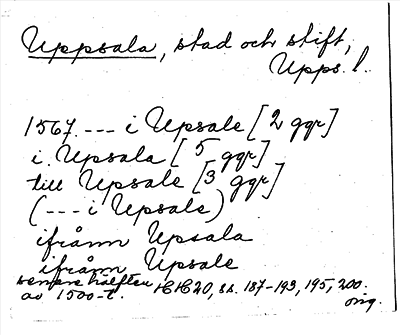 Uppsala, stad och stift,
Upps. l.
1567. --- i Upsale [2 ggr]
i Upsala [5 ggr]
till Upsale [3 ggr]
(--- i Upsale)
ifrånn Upsala
ifrånn Upsale
senare hälften HH20, ss. 187-193, 195, 200.
av 1500-t. orig.